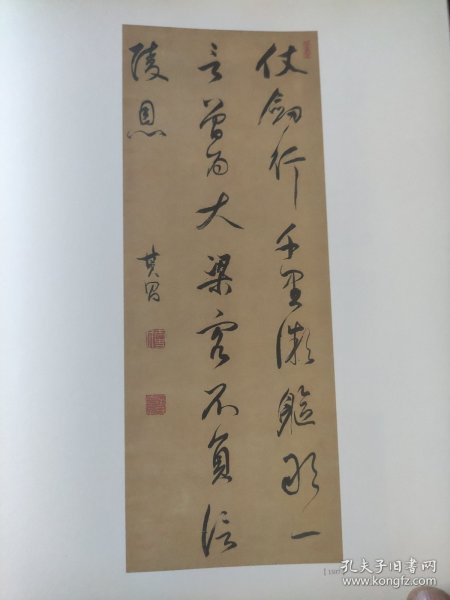 仗劍行千里微軀敢一
言曾為大梁客不負信
陵恩
其昌
孔夫子旧书网
www.kongfz.com